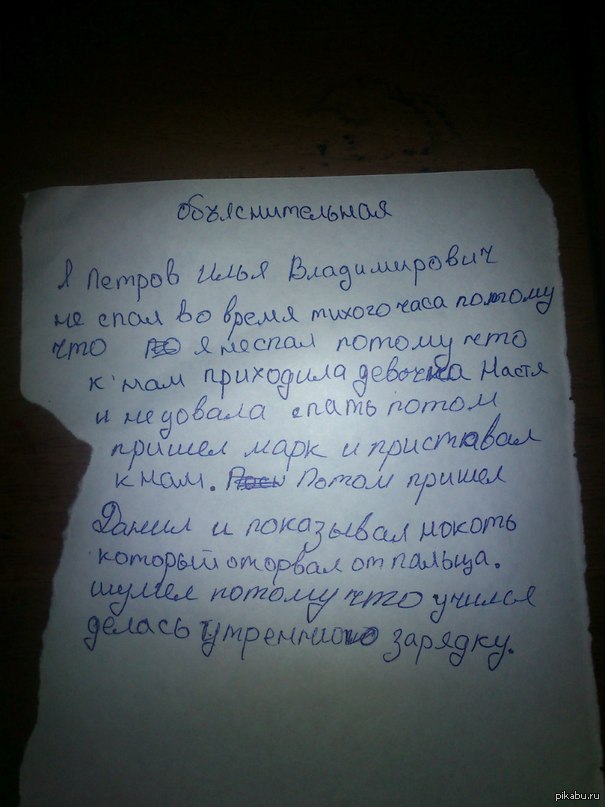 объяснительная
Я Петров Илья Владимирович
не спал во время тихого часа потому
что я неспал потому что
к нам приходила девочка Настя
и недовала спать потом
пришел марк и приставал
к нам. Потом пришел
Данил и показывал нокоть
который оторвал от пальца.
шумел потому что учился
делась утреннию зарядку.
pikabu.ru